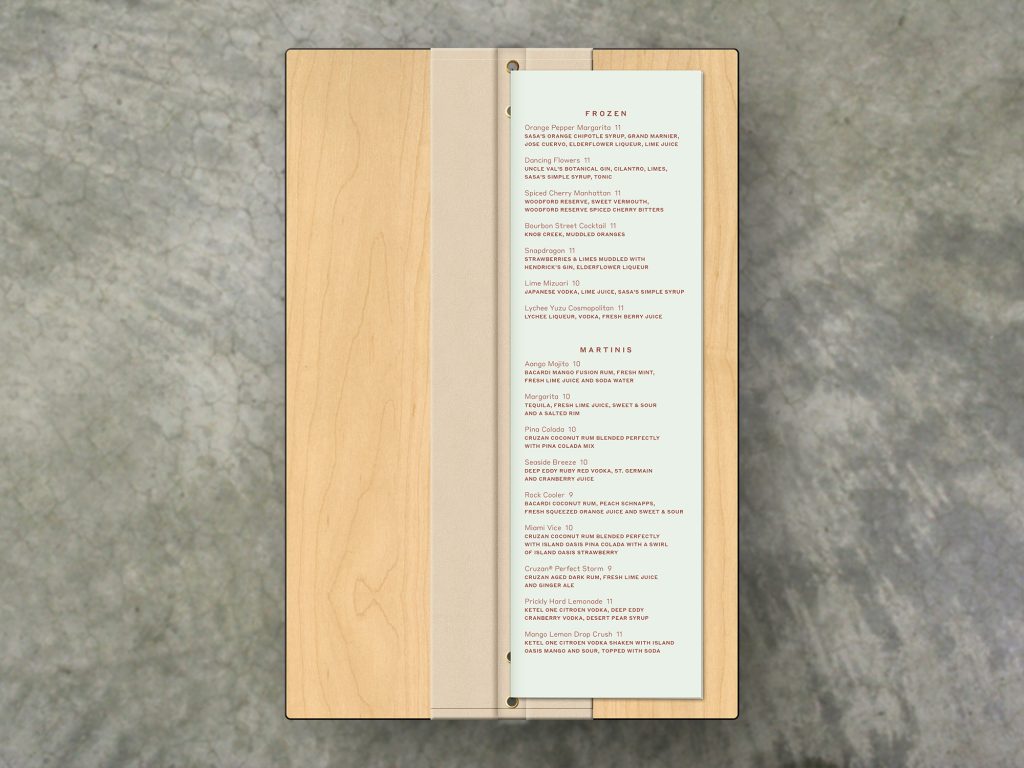 FROZEN
Orange Pepper Margarita 11
SASA'S ORANGE CHIPOTLE SYRUP, GRAND MARNIER,
JOSE CUERVO, ELDERFLOWER LIQUEUR, LIME JUICE
Dancing Flowers 11
UNCLE VAL'S BOTANICAL GIN, CILANTRO, LIMES,
SASA'S SIMPLE SYRUP, TONIC
Spiced Cherry Manhattan 11
WOODFORD RESERVE, SWEET VERMOUTH,
WOODFORD RESERVE SPICED CHERRY BITTERS
Bourbon Street Cocktail 11
KNOB CREEK, MUDDLED ORANGES
Snapdragon 11
STRAWBERRIES & LIMES MUDDLED WITH
HENDRICK'S GIN, ELDERFLOWER LIQUEUR
Lime Mizuari 10
JAPANESE VODKA, LIME JUICE, SASA'S SIMPLE SYRUP
Lychee Yuzu Cosmopolitan 11
LYCHEE LIQUEUR, VODKA, FRESH BERRY JUICE
MARTINIS
Aango Mojito 10
BACARDI MANGO FUSION RUM, FRESH MINT,
FRESH LIME JUICE AND SODA WATER
Margarita 10
TEQUILA, FRESH LIME JUICE, SWEET & SOUR
AND A SALTED RIM
Pina Colada 10
CRUZAN COCONUT RUM BLENDED PERFECTLY
WITH PINA COLADA MIX
Seaside Breeze 10
DEEP EDDY RUBY RED VODKA, ST. GERMAIN
AND CRANBERRY JUICE
Rock Cooler 9
BACARDI COCONUT RUM, PEACH SCHNAPPS,
FRESH SQUEEZED ORANGE JUICE AND SWEET & SOUR
Miami Vice 10
CRUZAN COCONUT RUM BLENDED PERFECTLY
WITH ISLAND OASIS PINA COLADA WITH A SWIRL
OF ISLAND OASIS STRAWBERRY
Cruzan® Perfect Storm 9
CRUZAN AGED DARK RUM, FRESH LIME JUICE
AND GINGER ALE
Prickly Hard Lemonade 11
KETEL ONE CITROEN VODKA, DEEP EDDY
CRANBERRY VODKA, DESERT PEAR SYRUP
Mango Lemon Drop Crush 11
KETEL ONE CITROEN VODKA SHAKEN WITH ISLAND
OASIS MANGO AND SOUR, TOPPED WITH SODA